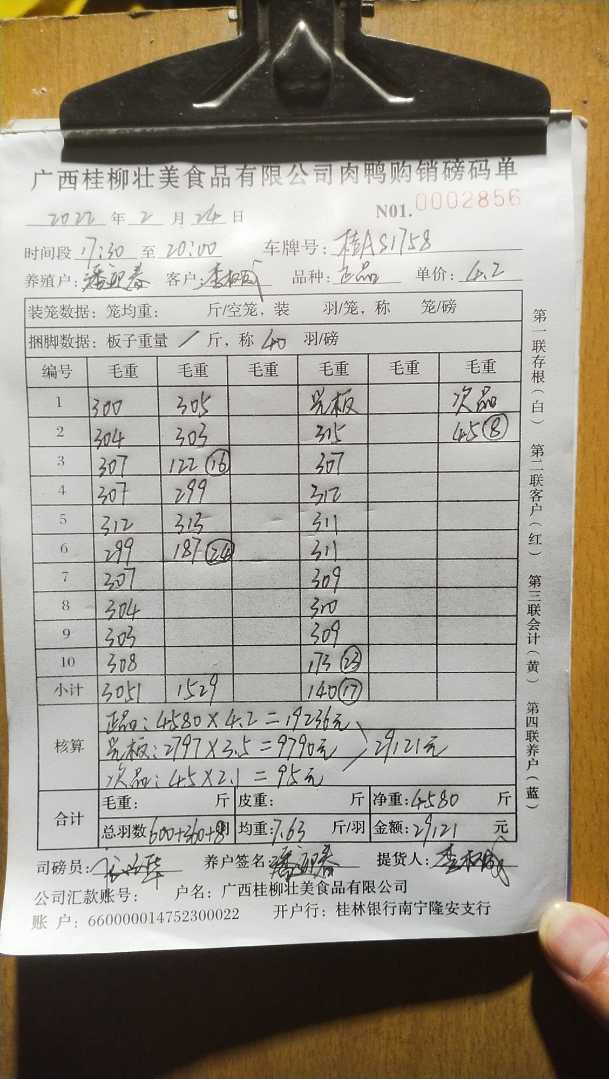 广西桂柳壮美食品有限公司肉鸭购销磅码单
2022 年 2 月 24 日 N01. 0002856
时间段 17:30 至 20:00 车牌号: 桂AS1758
养殖户: 客户: 品种: 正品 单价: 4.2
装笼数据: 笼均重: 斤/空笼, 装 羽/笼, 称 笼/磅
捆脚数据: 板子重量 / 斤, 称 40 羽/磅
编号 毛重 毛重 毛重 毛重 毛重 毛重
1 300 305 光板 次品
2 304 303 315 45 ⑧
3 307 122 ⑯ 307
4 307 299 312
5 312 313 311
6 299 187 ㉔ 311
7 307 309
8 304 310
9 303 309
10 308 173 ㉓
小计 3051 1529 140 ⑰
核算
正品: 4580×4.2=19236元
光板: 2797×3.5=9790元 29121元
次品: 45×2.1=95元
合计
毛重: 斤 皮重: 斤 净重: 4580 斤
总羽数 600+360+8羽 均重: 7.63 斤/羽 金额: 29121 元
司磅员: 养户签名: 提货人:
公司汇款账号: 户名: 广西桂柳壮美食品有限公司
账 户: 660000014752300022 开户行: 桂林银行南宁隆安支行
第一联存根(白) 第二联客户(红) 第三联会计(黄) 第四联养户(蓝)